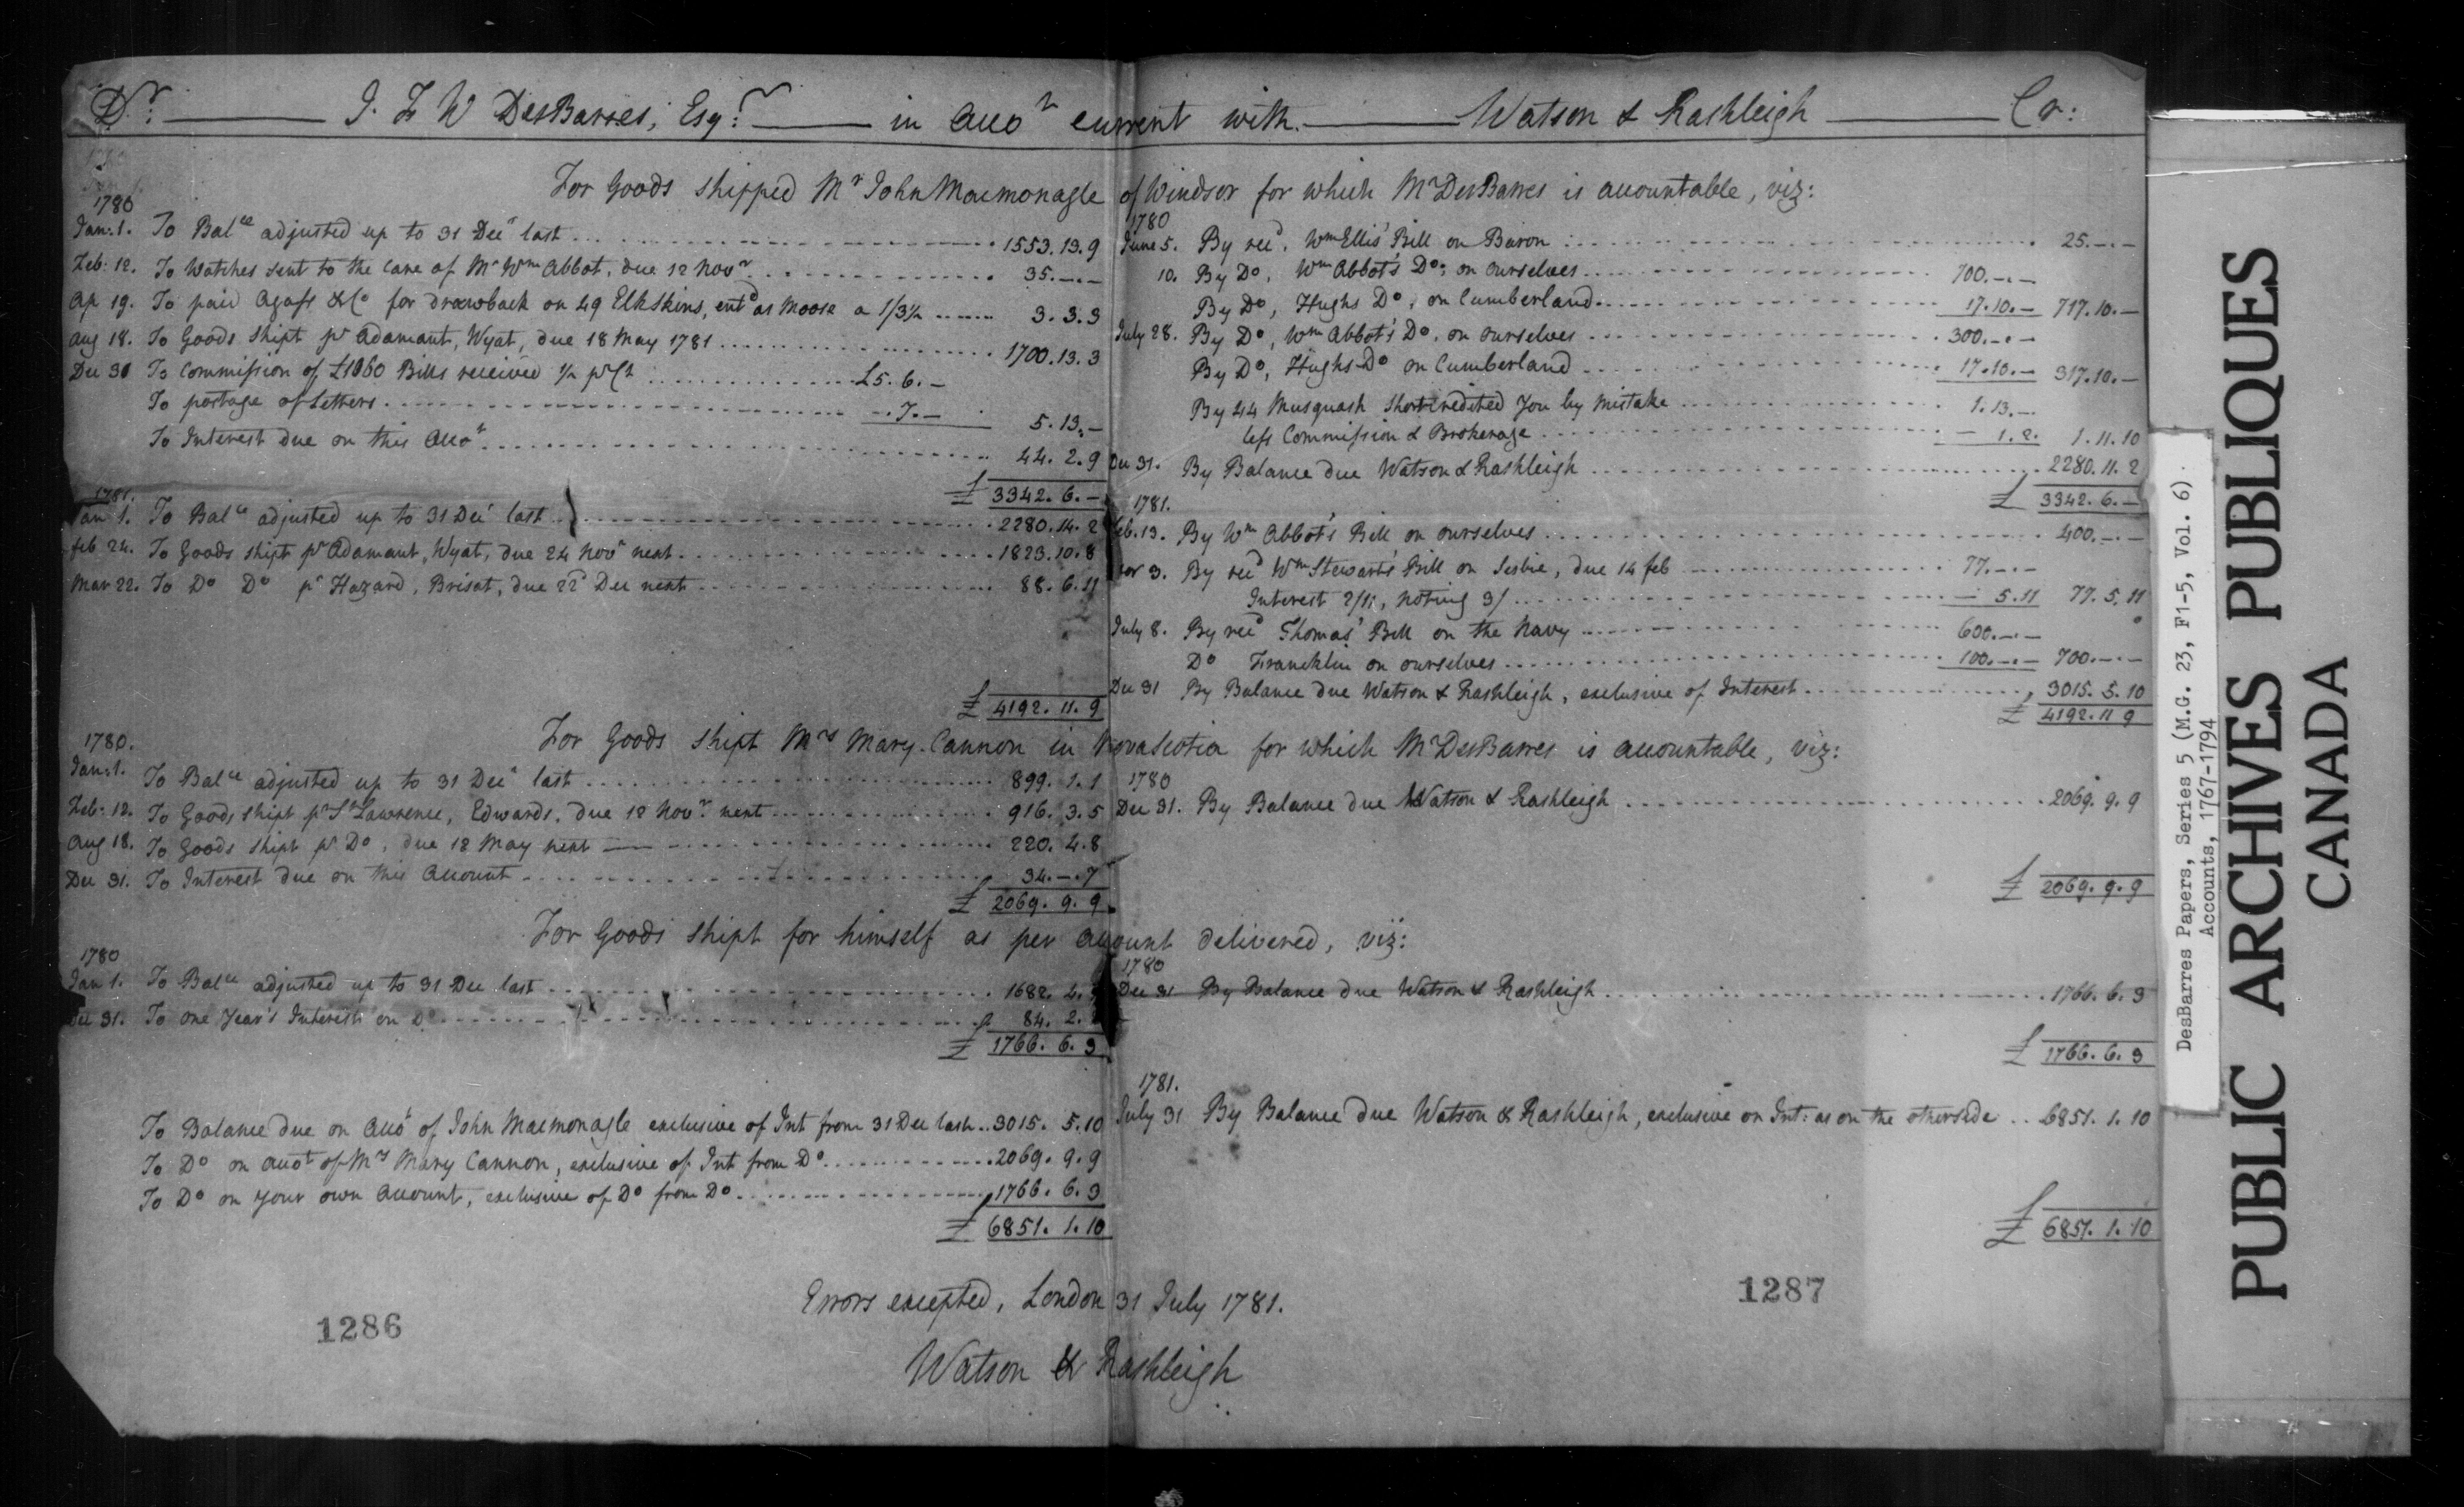 Dr: J. F W DesBarres, Esqr: in Accot current with. Watson & Rashleigh Cr:
For Goods shipped Mr John Macmonagle of Windsor for which Mr DesBarres is accountable, viz:
1780
Jan: 1. To Balce adjusted up to 31 Decr last 1553.13.9
Feb: 12. To Watches sent to the Care of Mr Wm Abbot, due 12 Novr 35.-.-
Ap 19. To paid Agass &Co for drawback on 49 Elkskins, entd as Moose a 1/3½ 3.3.3
Aug 18. To Goods shipt pr Adamant, Wyat, due 18 May 1781 1700.13.3
Dec 31 To Commission of £1060 Bills received ½ prCt £5.6.-
To postage of Letters -.7.- 5.13.-
To Interest due on this Accot 44.2.9
£ 3342.6.-
1781.
Jan 1. To Balce adjusted up to 31 Decr last 2280.14.2
Feb 24. To Goods shipt pr Adamant, Wyat, due 24 Novr next 1823.10.8
Mar 22. To Do Do pr Hazard, Brisat, due 22d Dec next 88.6.11
£ 4192.11.9
1780
June 5. By recd. Wm Ellis' Bill on Baron 25.-.-
10. By Do, Wm Abbot's Do, on ourselves 700.-.-
By Do, Hughs Do, on Cumberland 17.10.- 717.10.-
July 28. By Do, Wm Abbot's Do, on ourselves 300.-.-
By Do, Hughs Do on Cumberland 17.10.- 317.10.-
By 44 Musquash short credited you by mistake 1.13.-
less Commission & Brokerage - 1.2. 1.11.10
Dec 31. By Balance due Watson & Rashleigh 2280.11.2
£ 3342.6.-
1781.
Feb. 13. By Wm Abbot's Bill on ourselves 400.-.-
Mar 3. By recd Wm Stewart's Bill on Leslie, due 14 feb 77.-.-
Interest 2/11, noting 3/ - 5.11 77.5.11
July 8. By recd Thomas' Bill on the Navy 600.-.-
Do Francklin on ourselves 100.-.- 700.-.-
Dec 31 By Balance due Watson & Rashleigh, exclusive of Interest 3015.5.10
£ 4192.11 9
For Goods shipt Mrs Mary Cannon in Nova Scotia for which Mr DesBarres is accountable, viz:
1780.
Jan: 1. To Balce adjusted up to 31 Decr last 899.1.1
Feb: 12. To Goods shipt pr St Lawrence, Edwards, due 12 Novr next 916.3.5
Aug 18. To Goods shipt pr Do, due 18 May next 220.4.8
Dec 31. To Interest due on this Account 34.-.7
£ 2069.9.9
1780
Dec 31. By Balance due Watson & Rashleigh 2069.9.9
£ 2069.9.9
For Goods shipt for himself as per account delivered, viz:
1780
Jan 1. To Balce adjusted up to 31 Dec last 1682.4.
Dec 31. To one Year's Interest on Do 84.2.
£ 1766.6.3
1780
Dec 31 By Balance due Watson & Rashleigh 1766.6.3
£ 1766.6.3
To Balance due on Accot of John Macmonagle exclusive of Int from 31 Dec last 3015.5.10
To Do on Accot of Mrs Mary Cannon, exclusive of Int from Do 2069.9.9
To Do on your own Account, exclusive of Do from Do 1766.6.3
£ 6851.1.10
1781.
July 31 By Balance due Watson & Rashleigh, exclusive on Int: as on the otherside 6851.1.10
£ 6851.1.10
Errors excepted, London 31 July 1781.
Watson & Rashleigh
1286
1287
DesBarres Papers, Series 5 (M.G. 23, F1-5, Vol. 6)
Accounts, 1767-1794
PUBLIC ARCHIVES PUBLIQUES
CANADA